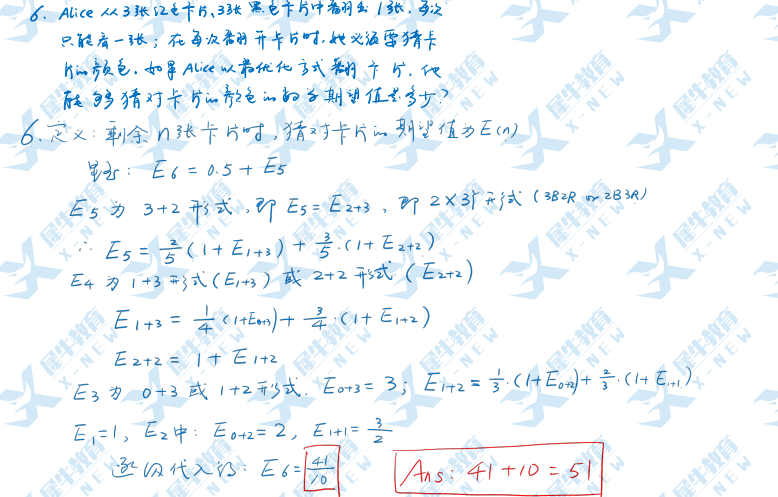 6. Alice 从3张红色卡片、3张黑色卡片中翻出1张,每次
只能看一张;在每次翻开卡片时,她必须要猜卡
片的颜色.如果Alice以最优化方式翻卡片,他
能够猜对卡片的颜色的的期望值是多少?
6.定义:剩余n张卡片时,猜对卡片的期望值为E(n)
显然: E6 = 0.5 + E5
E5 为 3+2 形式,即 E5 = E2+3 , 即 2×3形式 (3B2R or 2B3R)
∴ E5 = 2/5 (1+E1+3) + 3/5 · (1+E2+2)
E4 为 1+3 形式(E1+3) 或 2+2 形式 (E2+2)
E1+3 = 1/4 (1+E0+3) + 3/4 · (1+E1+2)
E2+2 = 1 + E1+2
E3 为 0+3 或 1+2 形式. E0+3 = 3; E1+2 = 1/3 · (1+E0+2) + 2/3 · (1+E1+1)
E1=1, E2中: E0+2 = 2, E1+1 = 3/2
逐级代入得: E6 = 41/10 Ans: 41+10 = 51
犀牛教育
X-NEW